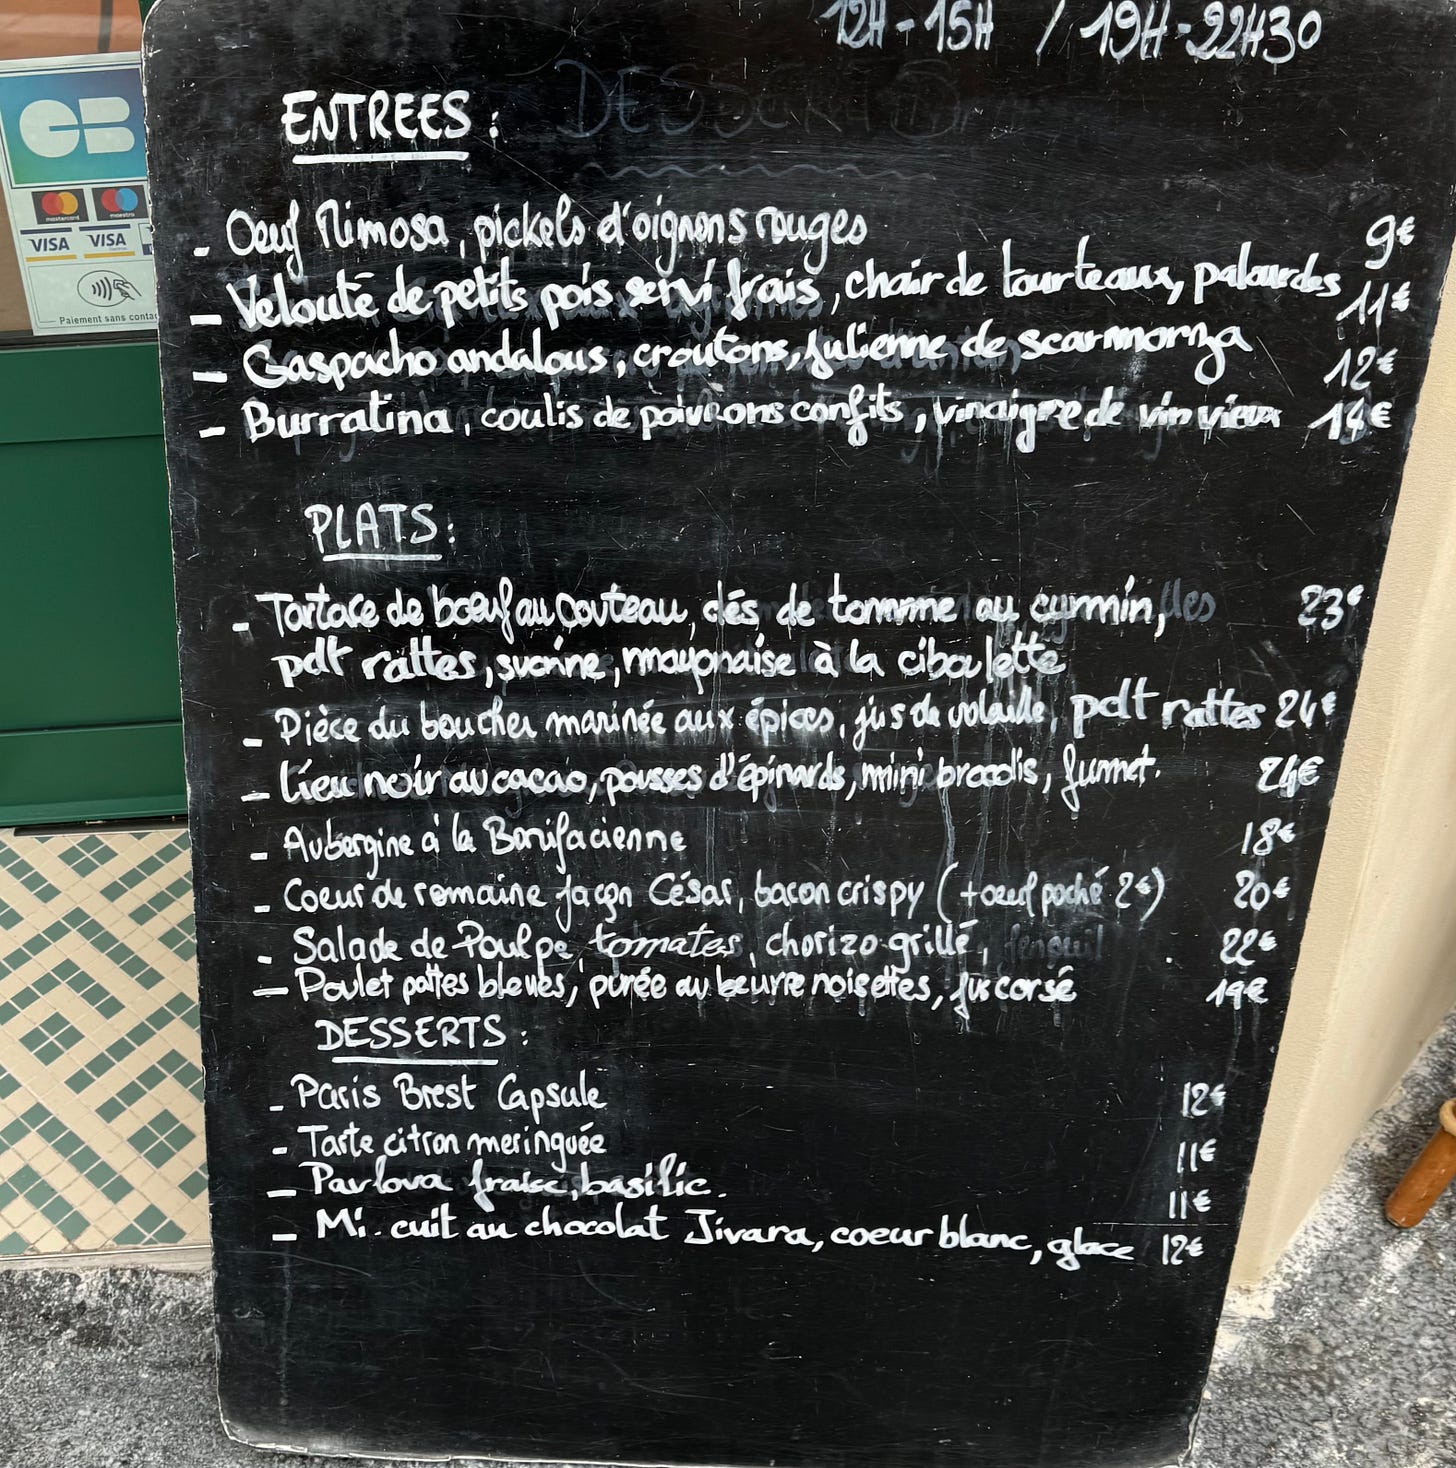 12H-15H / 19H-22H30
DESSERT
ENTREES :
- Oeuf Mimosa, pickels d'oignons rouges 9€
- Velouté de petits pois servi frais, chair de tourteaux, palourdes 11€
- Gaspacho andalous, croutons, julienne de scarmorza 12€
- Burratina, coulis de poivrons confits, vinaigre de vin vieux 14€
PLATS :
- Tartare de bœuf au Couteau, dés de tomme au cumin, 23€
pdt rattes, sucrine, mayonaise à la ciboulette
- Pièce du boucher marinée aux épices, jus de volaille, pdt rattes 24€
- Lieu noir au cacao, pousses d'épinards, mini brocolis, fumet. 24€
- Aubergine à la Bonifacienne 18€
- Coeur de romaine façon César, bacon crispy (+ oeuf poché 2€) 20€
- Salade de Poulpe tomates, chorizo grillé, fenouil 22€
- Poulet pattes bleues, purée au beurre noisettes, jus corsé 19€
DESSERTS :
- Paris Brest Capsule 12€
- Tarte citron meringuée 11€
- Pavlova fraise, basilic. 11€
- Mi-cuit au chocolat Jivara, coeur blanc, glace 12€
CB
mastercard maestro
VISA VISA
Paiement sans contac